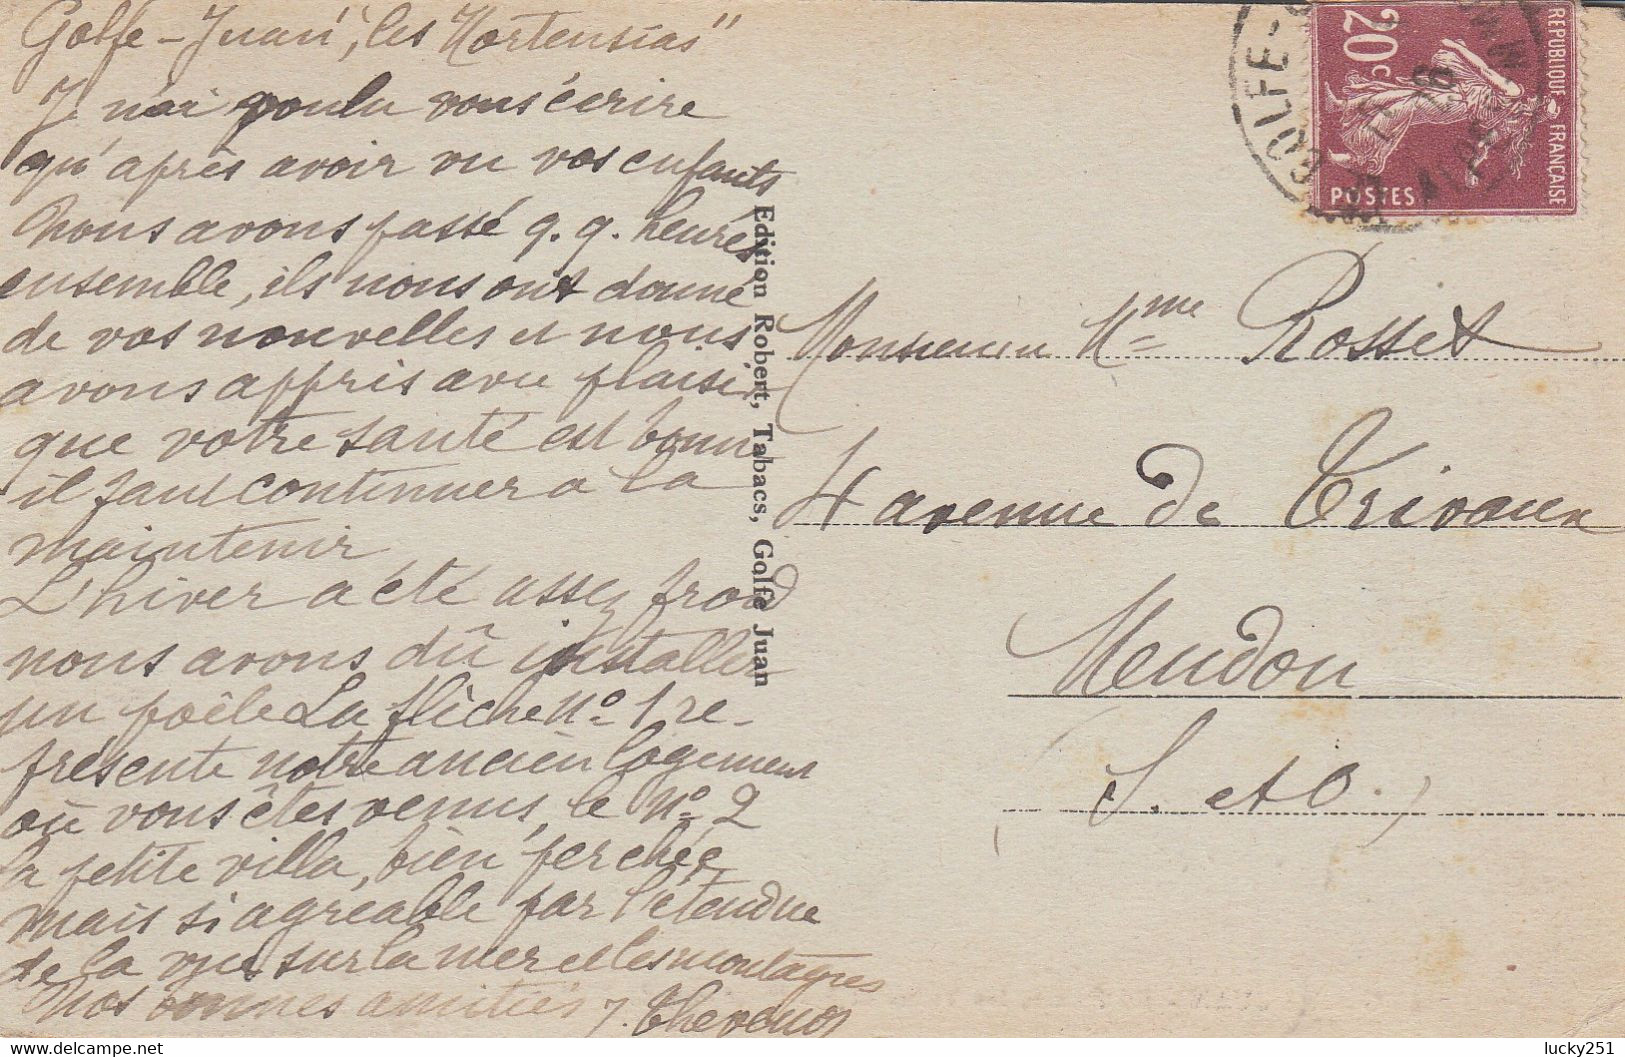 Golfe-Juan, "les Hortensias"
Je n'ai voulu vous écrire
qu'après avoir vu vos enfants
Nous avons passé q.q. heures
ensemble, ils nous ont donné
de vos nouvelles et nous
avons appris avec plaisir
que votre santé est bonne
il faut continuer a la
maintenir
L'hiver a été assez froid
nous avons dû installer
un poêle La flèche N° 1 re-
présente notre ancien logement
où vous êtes venus, le N° 2
la petite villa, bien perchée
mais si agréable par l'étendue
de la vue sur la mer et les montagnes
Nos bonnes amitiés J. Thevenot
Edition Robert, Tabacs, Golfe Juan
REPUBLIQUE FRANÇAISE
20c
POSTES
GOLFE-
Monsieur Mme Rosset
4 avenue de Trivaux
Meudon
S. et O.
lucky251